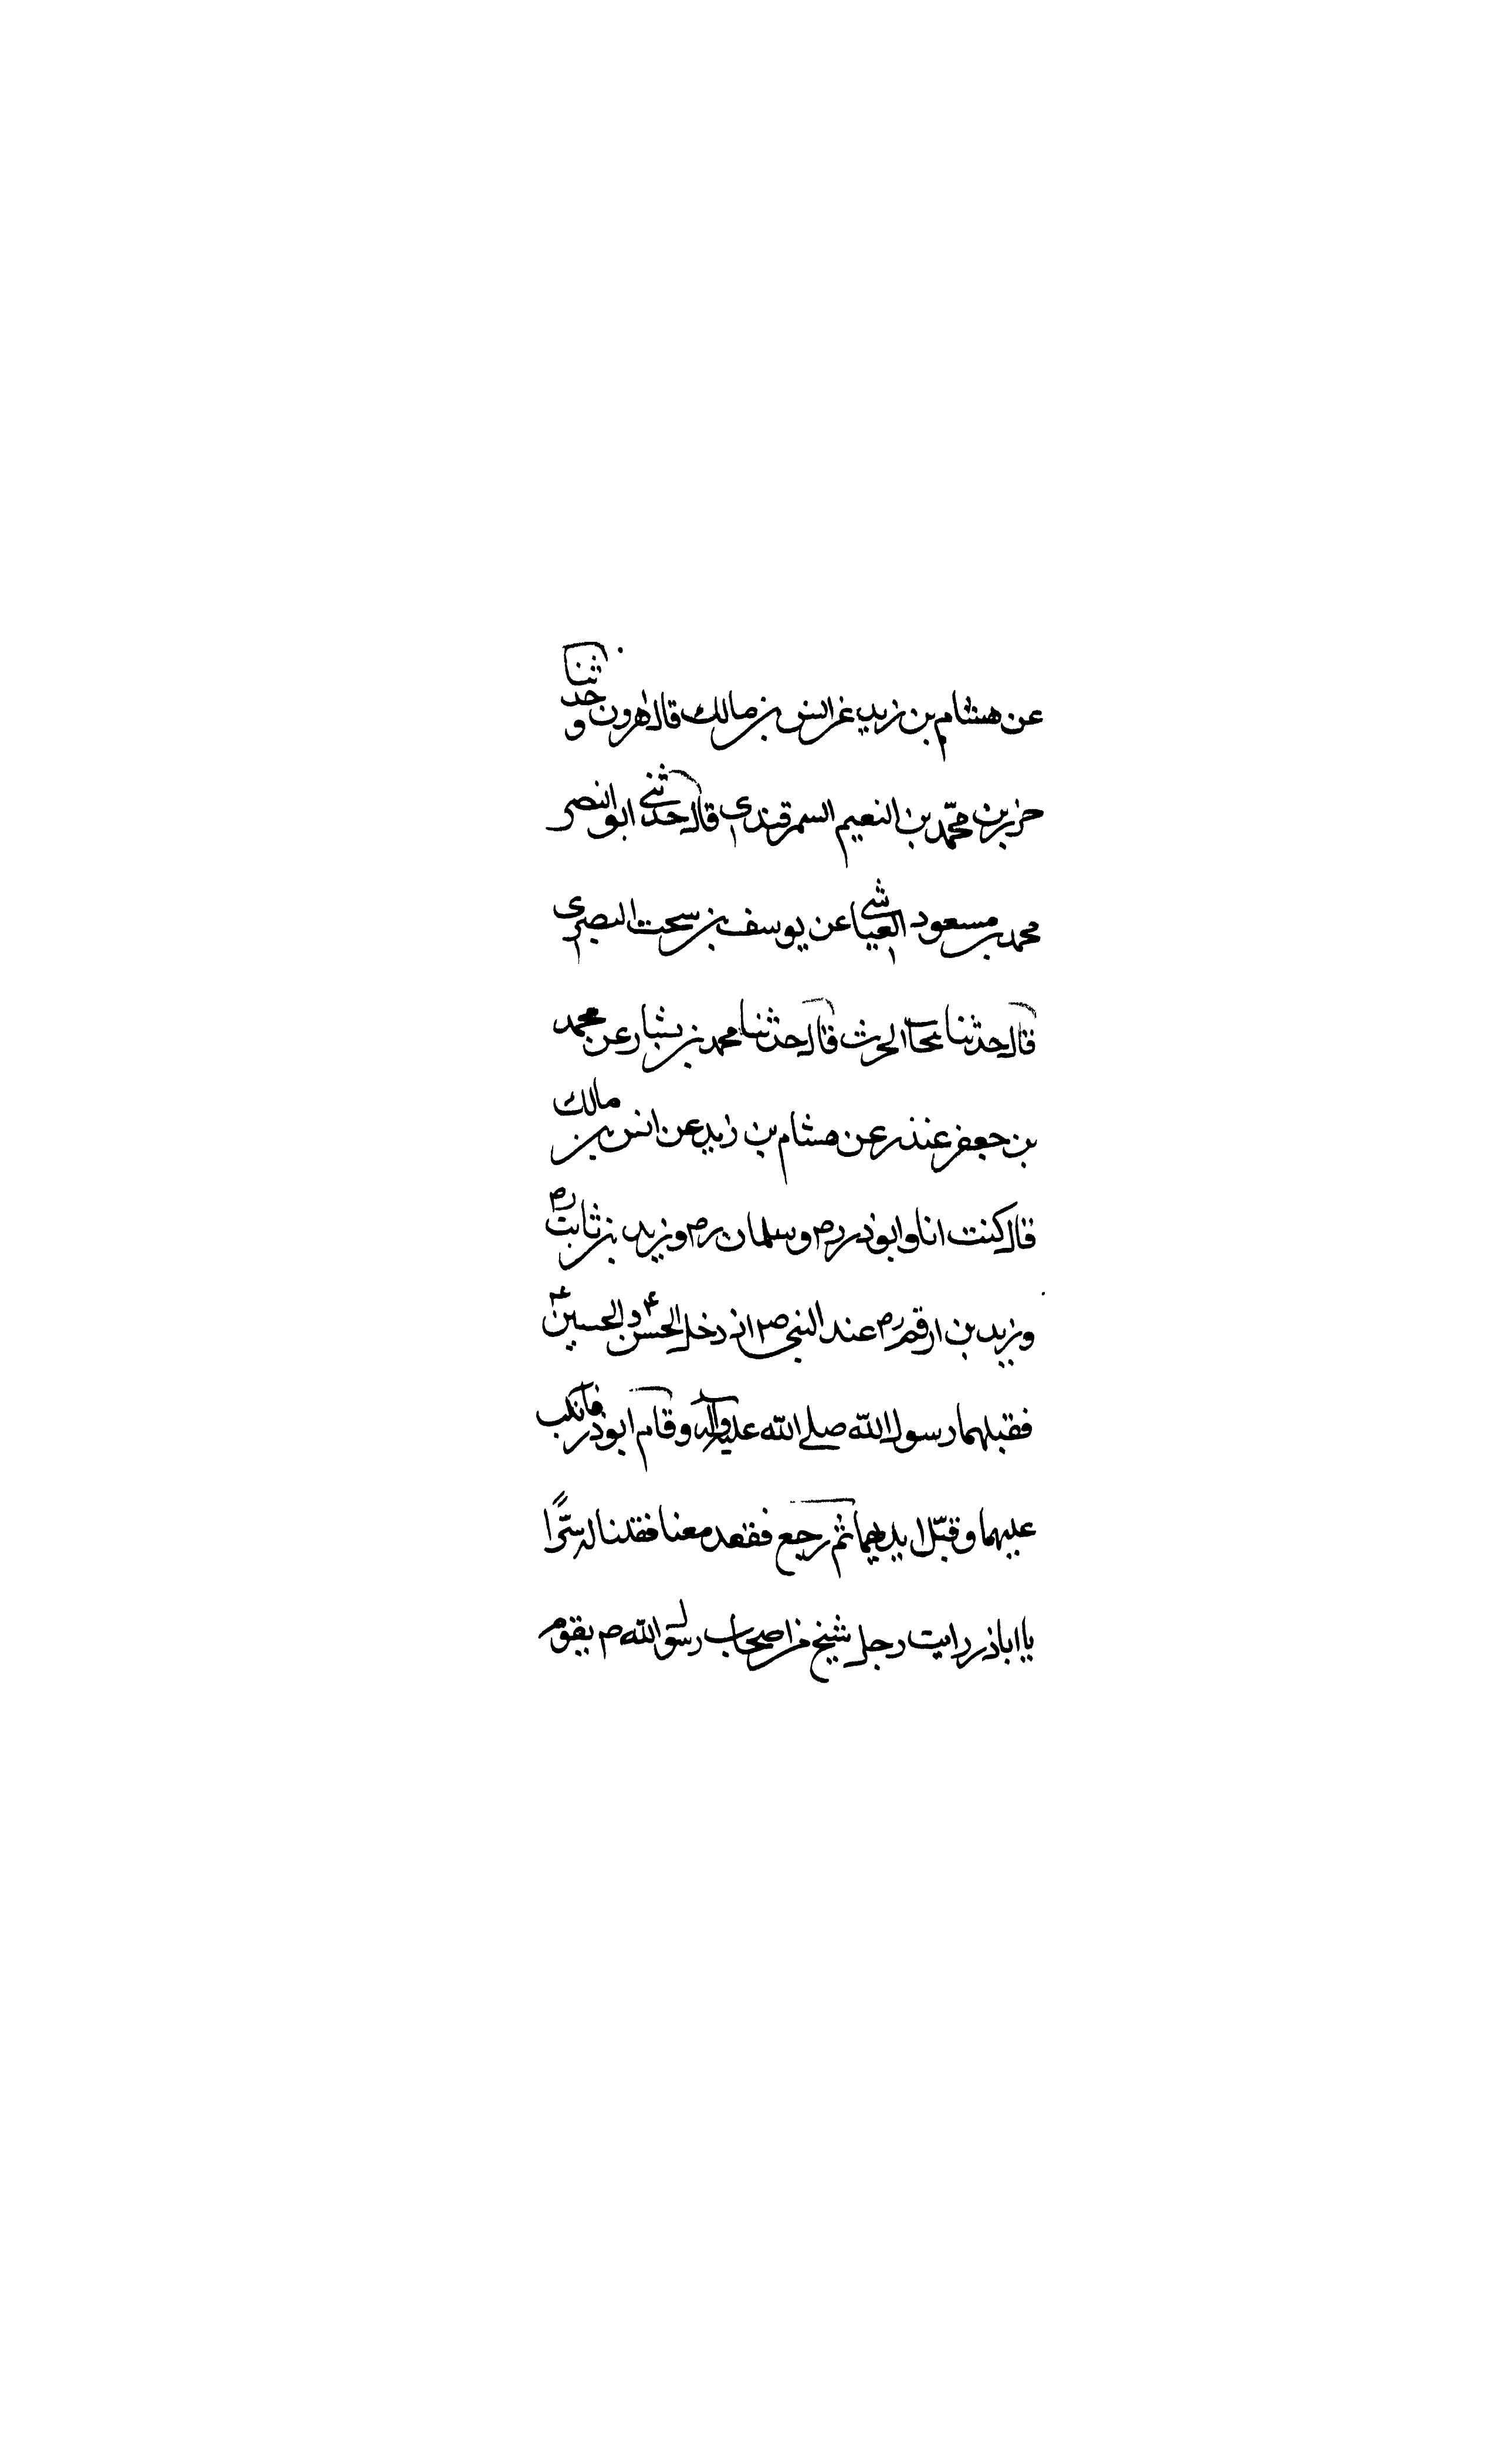 عن هشام بن زيد عن انس بن مالك قال هرون و حدثنا
حريز بن محمّد بن النعيم السمرقندي قال حدثني ابو النصر
محمد بن مسعود العياشي عن يوسف بن سحت البصري
قال حدثنا الحرث قال حدثنا محمد بن بشار عن محمد
بن جعفر غندر عن هشام بن زيد عن انس بن مالك
قال كنت انا وابوذر رم وسلمان رم وزيد بن ثابت رم
وزيد بن ارقم رم عند النبي ص اذ دخل الحسن ع والحسين ع
فقبلهما رسول الله صلى الله عليه وآله وقام ابوذر فانكب
عليهما وقبّل ايديهما ثم رجع فقعد معنا فقلنا له سرًّا
يا اباذر رايت رجل شيخ من اصحاب رسول الله ص يقوم